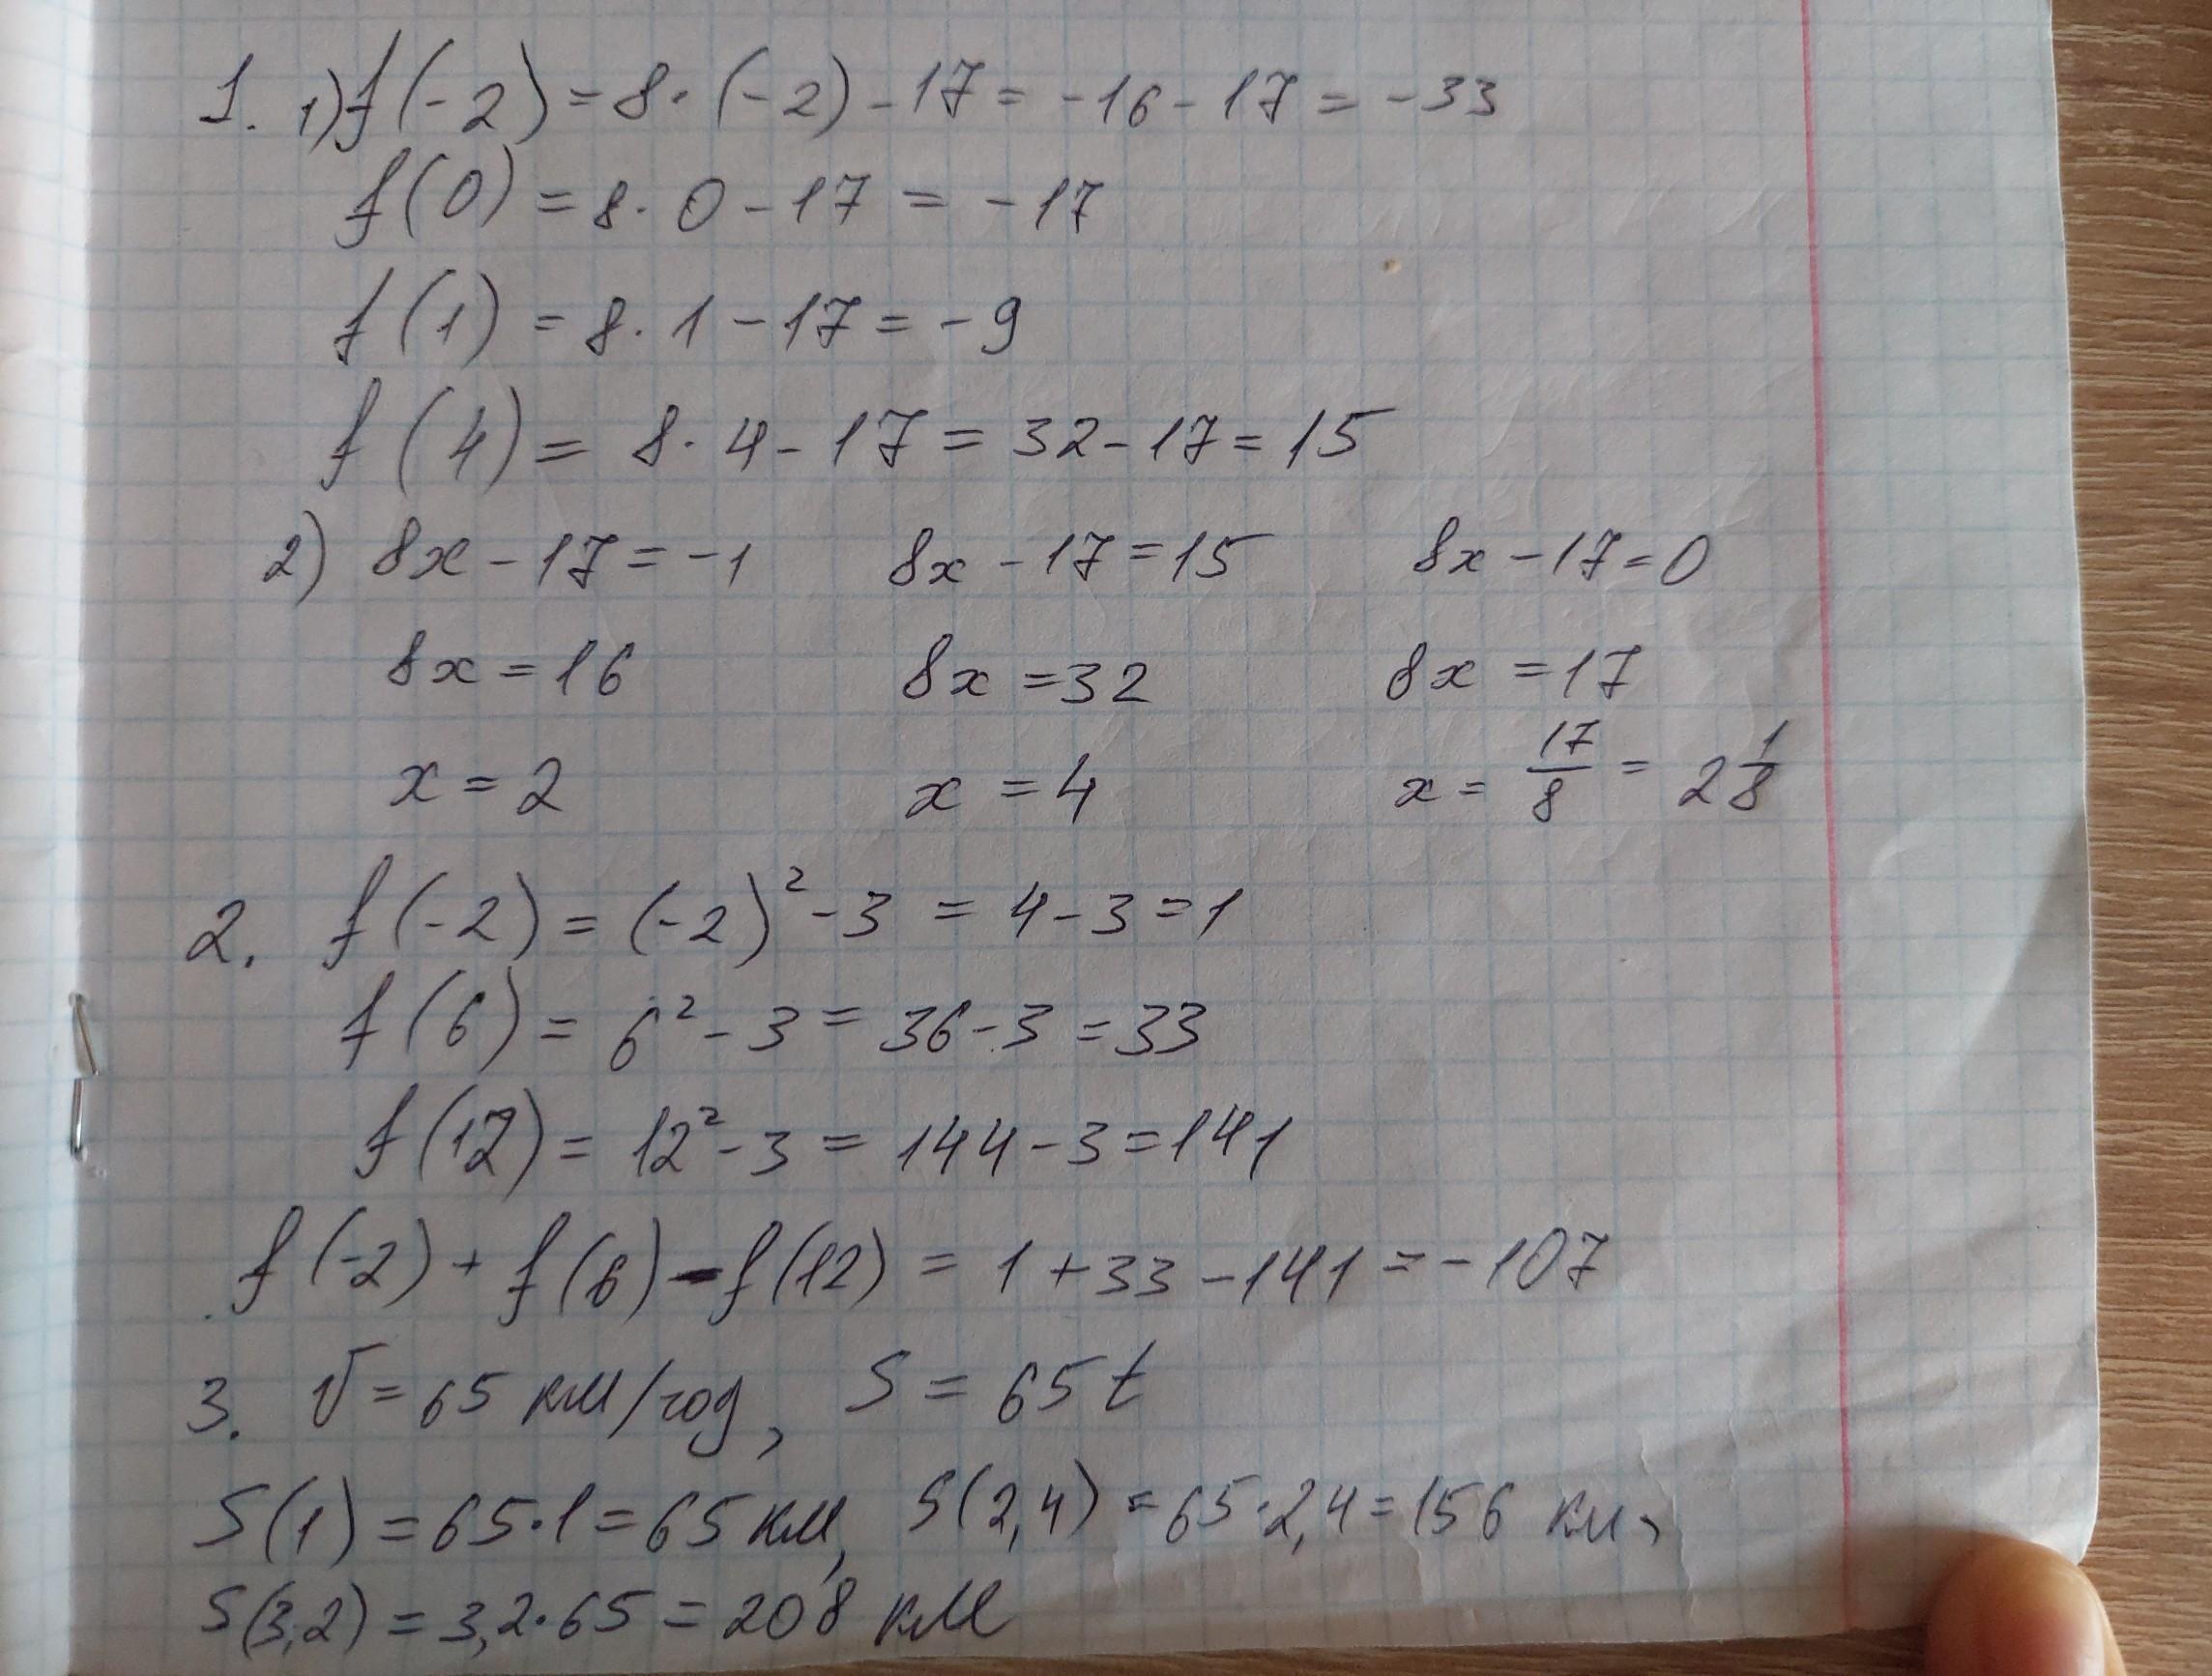 1. 1) f(-2) = 8·(-2)-17 = -16-17 = -33
f(0) = 8·0-17 = -17
f(1) = 8·1-17 = -9
f(4) = 8·4-17 = 32-17 = 15
2) 8x-17=-1 8x-17=15 8x-17=0
8x=16 8x=32 8x=17
x=2 x=4 x= 17/8 = 2 1/8
2. f(-2) = (-2)²-3 = 4-3=1
f(6) = 6²-3 = 36-3=33
f(12) = 12²-3 = 144-3=141
f(-2)+f(6)-f(12) = 1+33-141=-107
3. V=65 км/год, S=65t
S(1)=65·1=65 км, S(2,4)=65·2,4=156 км,
S(3,2)=3,2·65=208 км